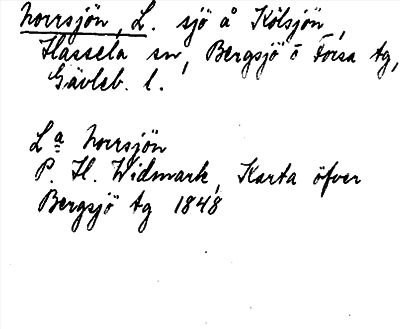 Norrsjön, L. sjö å Kölsjön,
Hassela sn, Bergsjö o Forsa tg,
Gävleb. l.
La Norrsjön
P. H. Widmark, Karta öfver
Bergsjö tg 1848